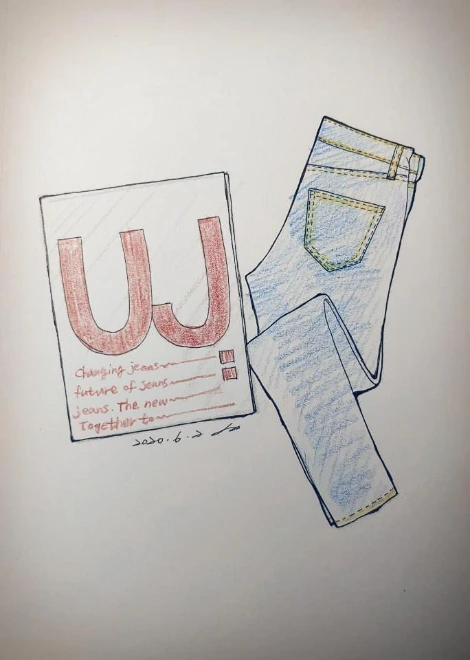 UJ
Changing jeans
future of jeans
jeans. The new
Together to
2020.6.2